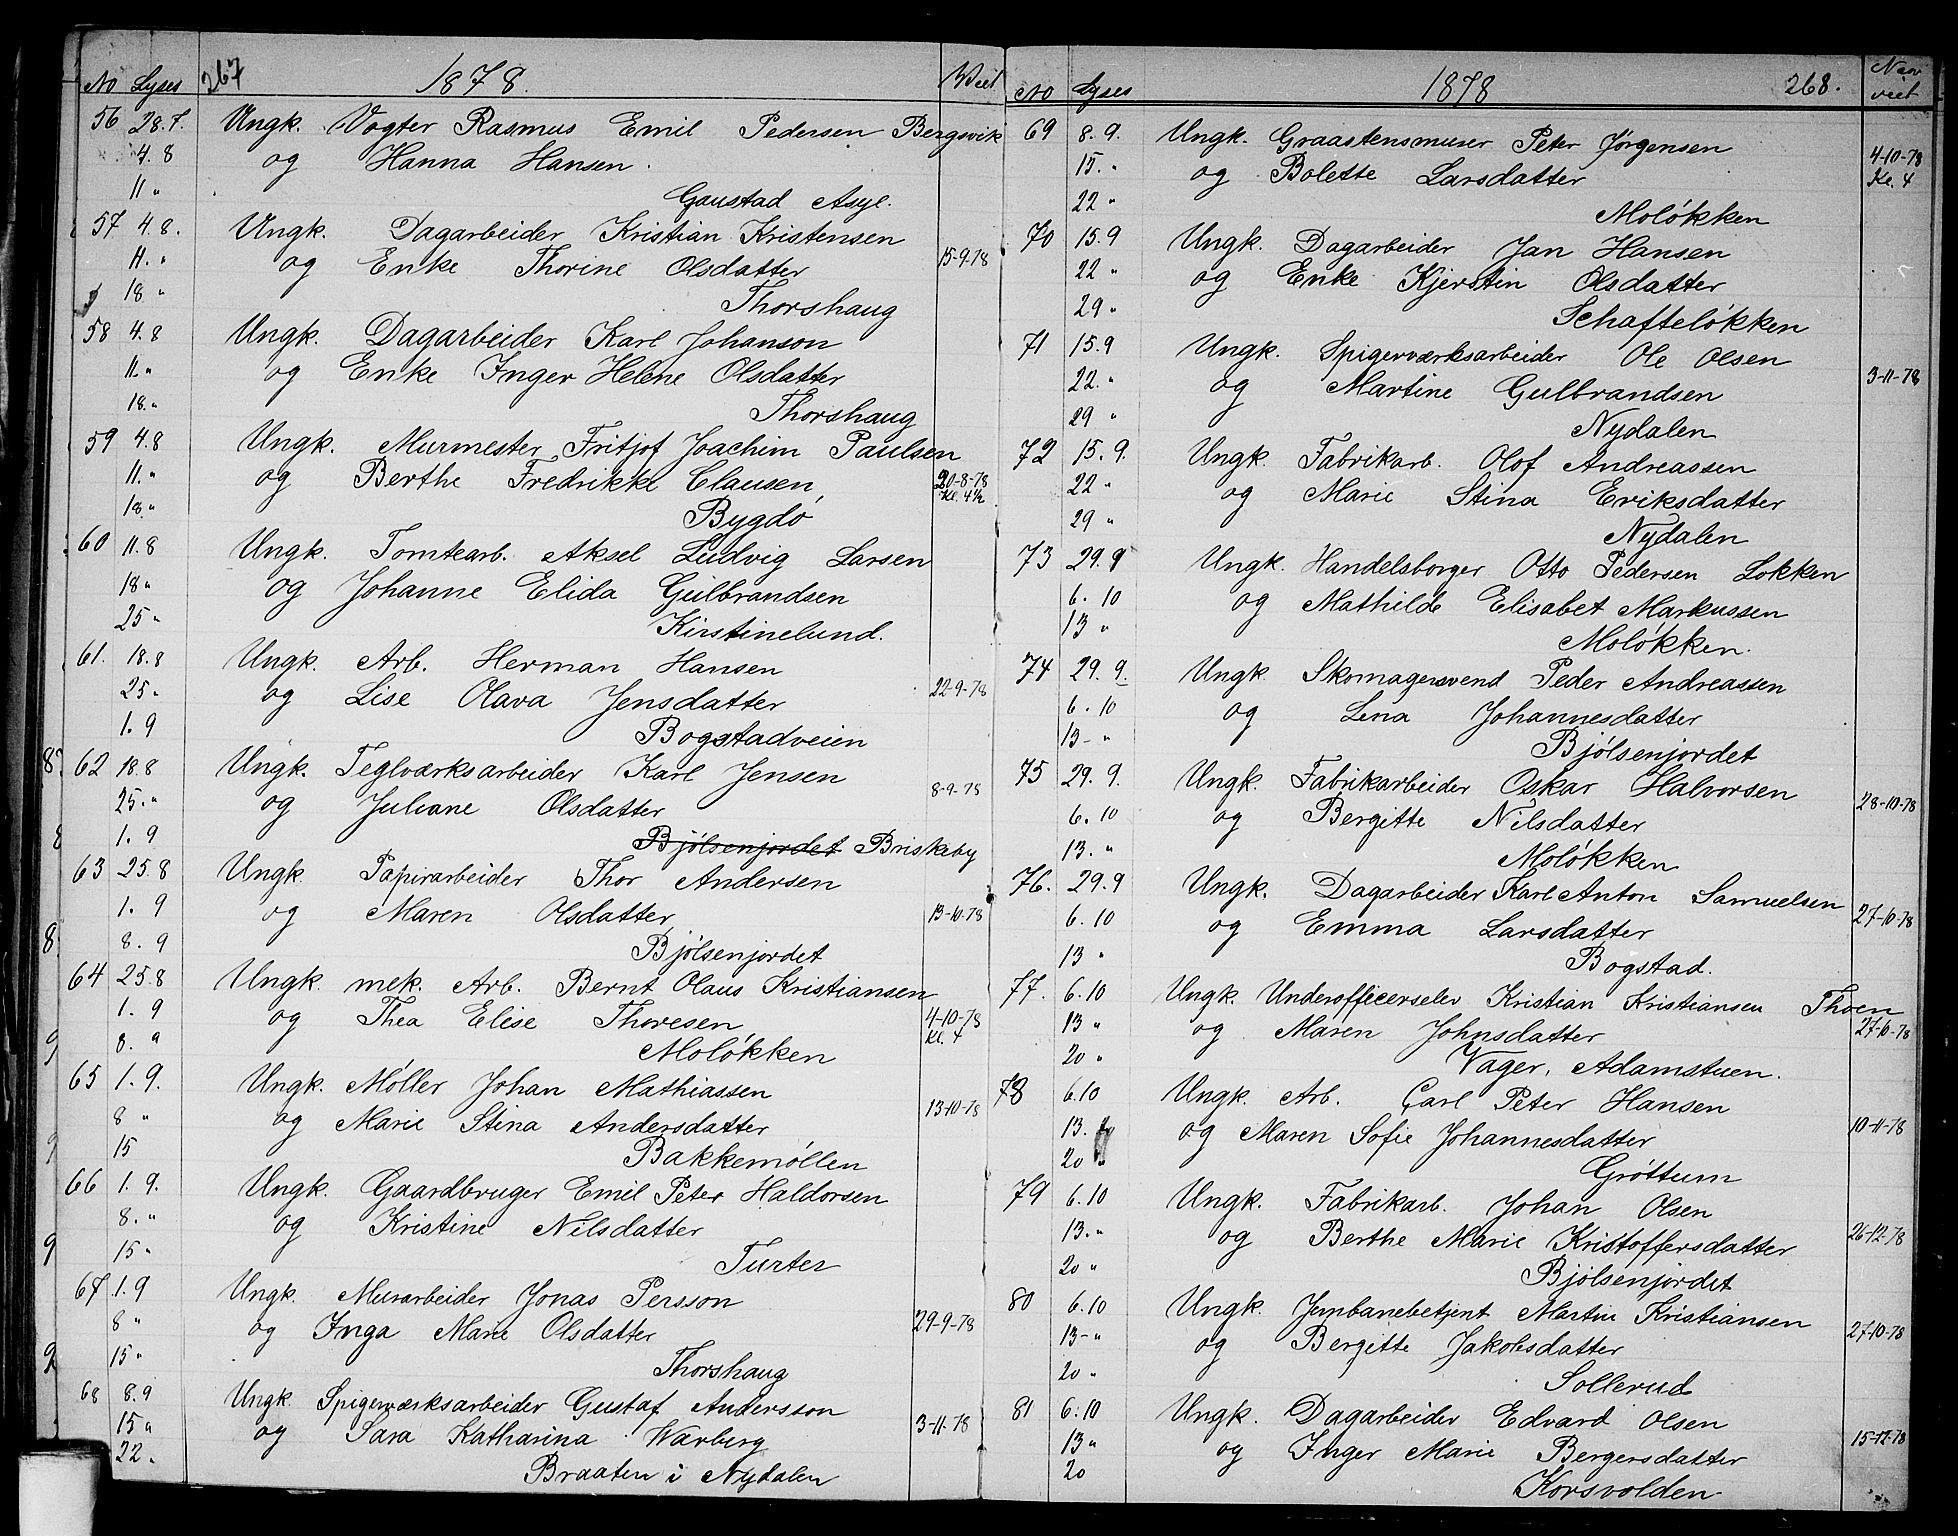 No Lyses 267 1878. Viet
56 28.7. Ungk. Vogter Rasmus Emil Pedersen Bergsvik
4.8 og Hanna Hansen.
11 " Gaustad Asyl.
57 4.8. Ungk. Dagarbeider Kristian Kristensen
11. " og Enke Thorine Olsdatter 15-9-78
18 " Thorshaug
58 4.8 Ungk. Dagarbeider Karl Johanson
11. " og Enke Inger Helene Olsdatter
18. " Thorshaug
59 4.8 Ungk. Murmester Fritjof Joachim Paulsen
11. " og Berthe Fredrikke Clausen, 20-8-78 Kl. 4½
18. " Bygdø
60 11.8 Ungk. Tomtearb. Aksel Ludvig Larsen
18 " og Johanne Elida Gulbrandsen
25 " Kirstinelund.
61. 18.8 Ungk. Arb. Herman Hansen
25. og Lise Olava Jensdatter 22-9-78
1.9 Bogstadveien
62 18.8 Ungk. Teglværksarbeider Karl Jensen
25. " og Juliane Olsdatter 8-9-78
1.9 Bjølsenjordet Briskeby
63 25.8 Ungk. Papirarbeider Thor Andersen
1.9 og Maren Olsdatter, 13-10-78
8.9 Bjølsenjordet
64 25.8 Ungk. mek. Arb. Bernt Olaus Kristiansen
1.9 og Thea Elise Thoresen, 4-10-78 Kl. 4
8.9 Moløkken
65 1.9. Ungk. Møller Johan Mathiassen
8 " og Marie Stina Andersdatter 13-10-78
15 Bakkemøllen
66 1.9. Ungk. Gaardbruger Emil Peter Haldorsen
8. " og Kristine Nilsdatter
15 " Turter
67 1.9 Ungk. Murarbeider Jonas Persson
8 " og Inga Marie Olsdatter 29-9-78
15 " Thorshaug
68 8.9 Ungk. Spigerværksarbeider Gustaf Andersson
15 " og Sara Katharina Warberg 3-11-78
22 " Braaten i Nydalen
No Lyses 1878 268. Naar viet
69 8.9. Ungk. Graastensmurer Peter Jørgensen
15. " og Bolette Larsdatter 4-10-78 Kl. 4
22 " Moløkken
70 15.9 Ungk. Dagarbeider Jan Hansen
22 " og Enke Kjerstin Olsdatter
29 " Schafteløkken
71 15.9 Ungk. Spigerværksarbeider Ole Olsen
22. " og Martine Gulbrandsen 3-11-78
29 " Nydalen
72 15.9. Ungk. Fabrikarb. Olof Andreassen
22 " og Marie Stina Eriksdatter
29 " Nydalen
73 29.9 Ungk. Handelsborger Otto Pedersen Løkken
6.10 og Mathilde Elisabet Markussen
13 " Moløkken.
74 29.9. Ungk. Skomagersvend Peder Andreassen
6.10 og Lena Johannesdatter
13- " Bjølsenjordet
75 29.9. Ungk. Fabrikarbeider Oskar Halvorsen
6.10 og Bergitte Nilsdatter 28-10-78
13. " Moløkken
76. 29.9 Ungk. Dagarbeider Karl Anton Samuelsen
6.10 og Emma Larsdatter 27-10-78
13 " Bogstad.
77. 6.10 Ungk. Underofficerselev Kristian Kristiansen Thoen
13 " og Maren Johnsdatter
20 " Vager, Adamstuen.
78 6.10 Ungk. Arb. Carl Peter Hansen
13. og Maren Sofie Johannesdatter 10-11-78
20 " Grøttum
79 6.10 Ungk. Fabrikarb. Johan Olsen
13. " og Berthe Marie Kristoffersdatter 26-12-78
20 " Bjølsenjordet
80 6.10 Ungk. Jernbanebetjent Martin Kristiansen
13- " og Bergitte Jakobsdatter 27-10-78
20 " Sollerud
81 6.10 Ungk. Dagarbeider Edvard Olsen
13 " og Inger Marie Bergersdatter 15-12-78
20 Korsvolden